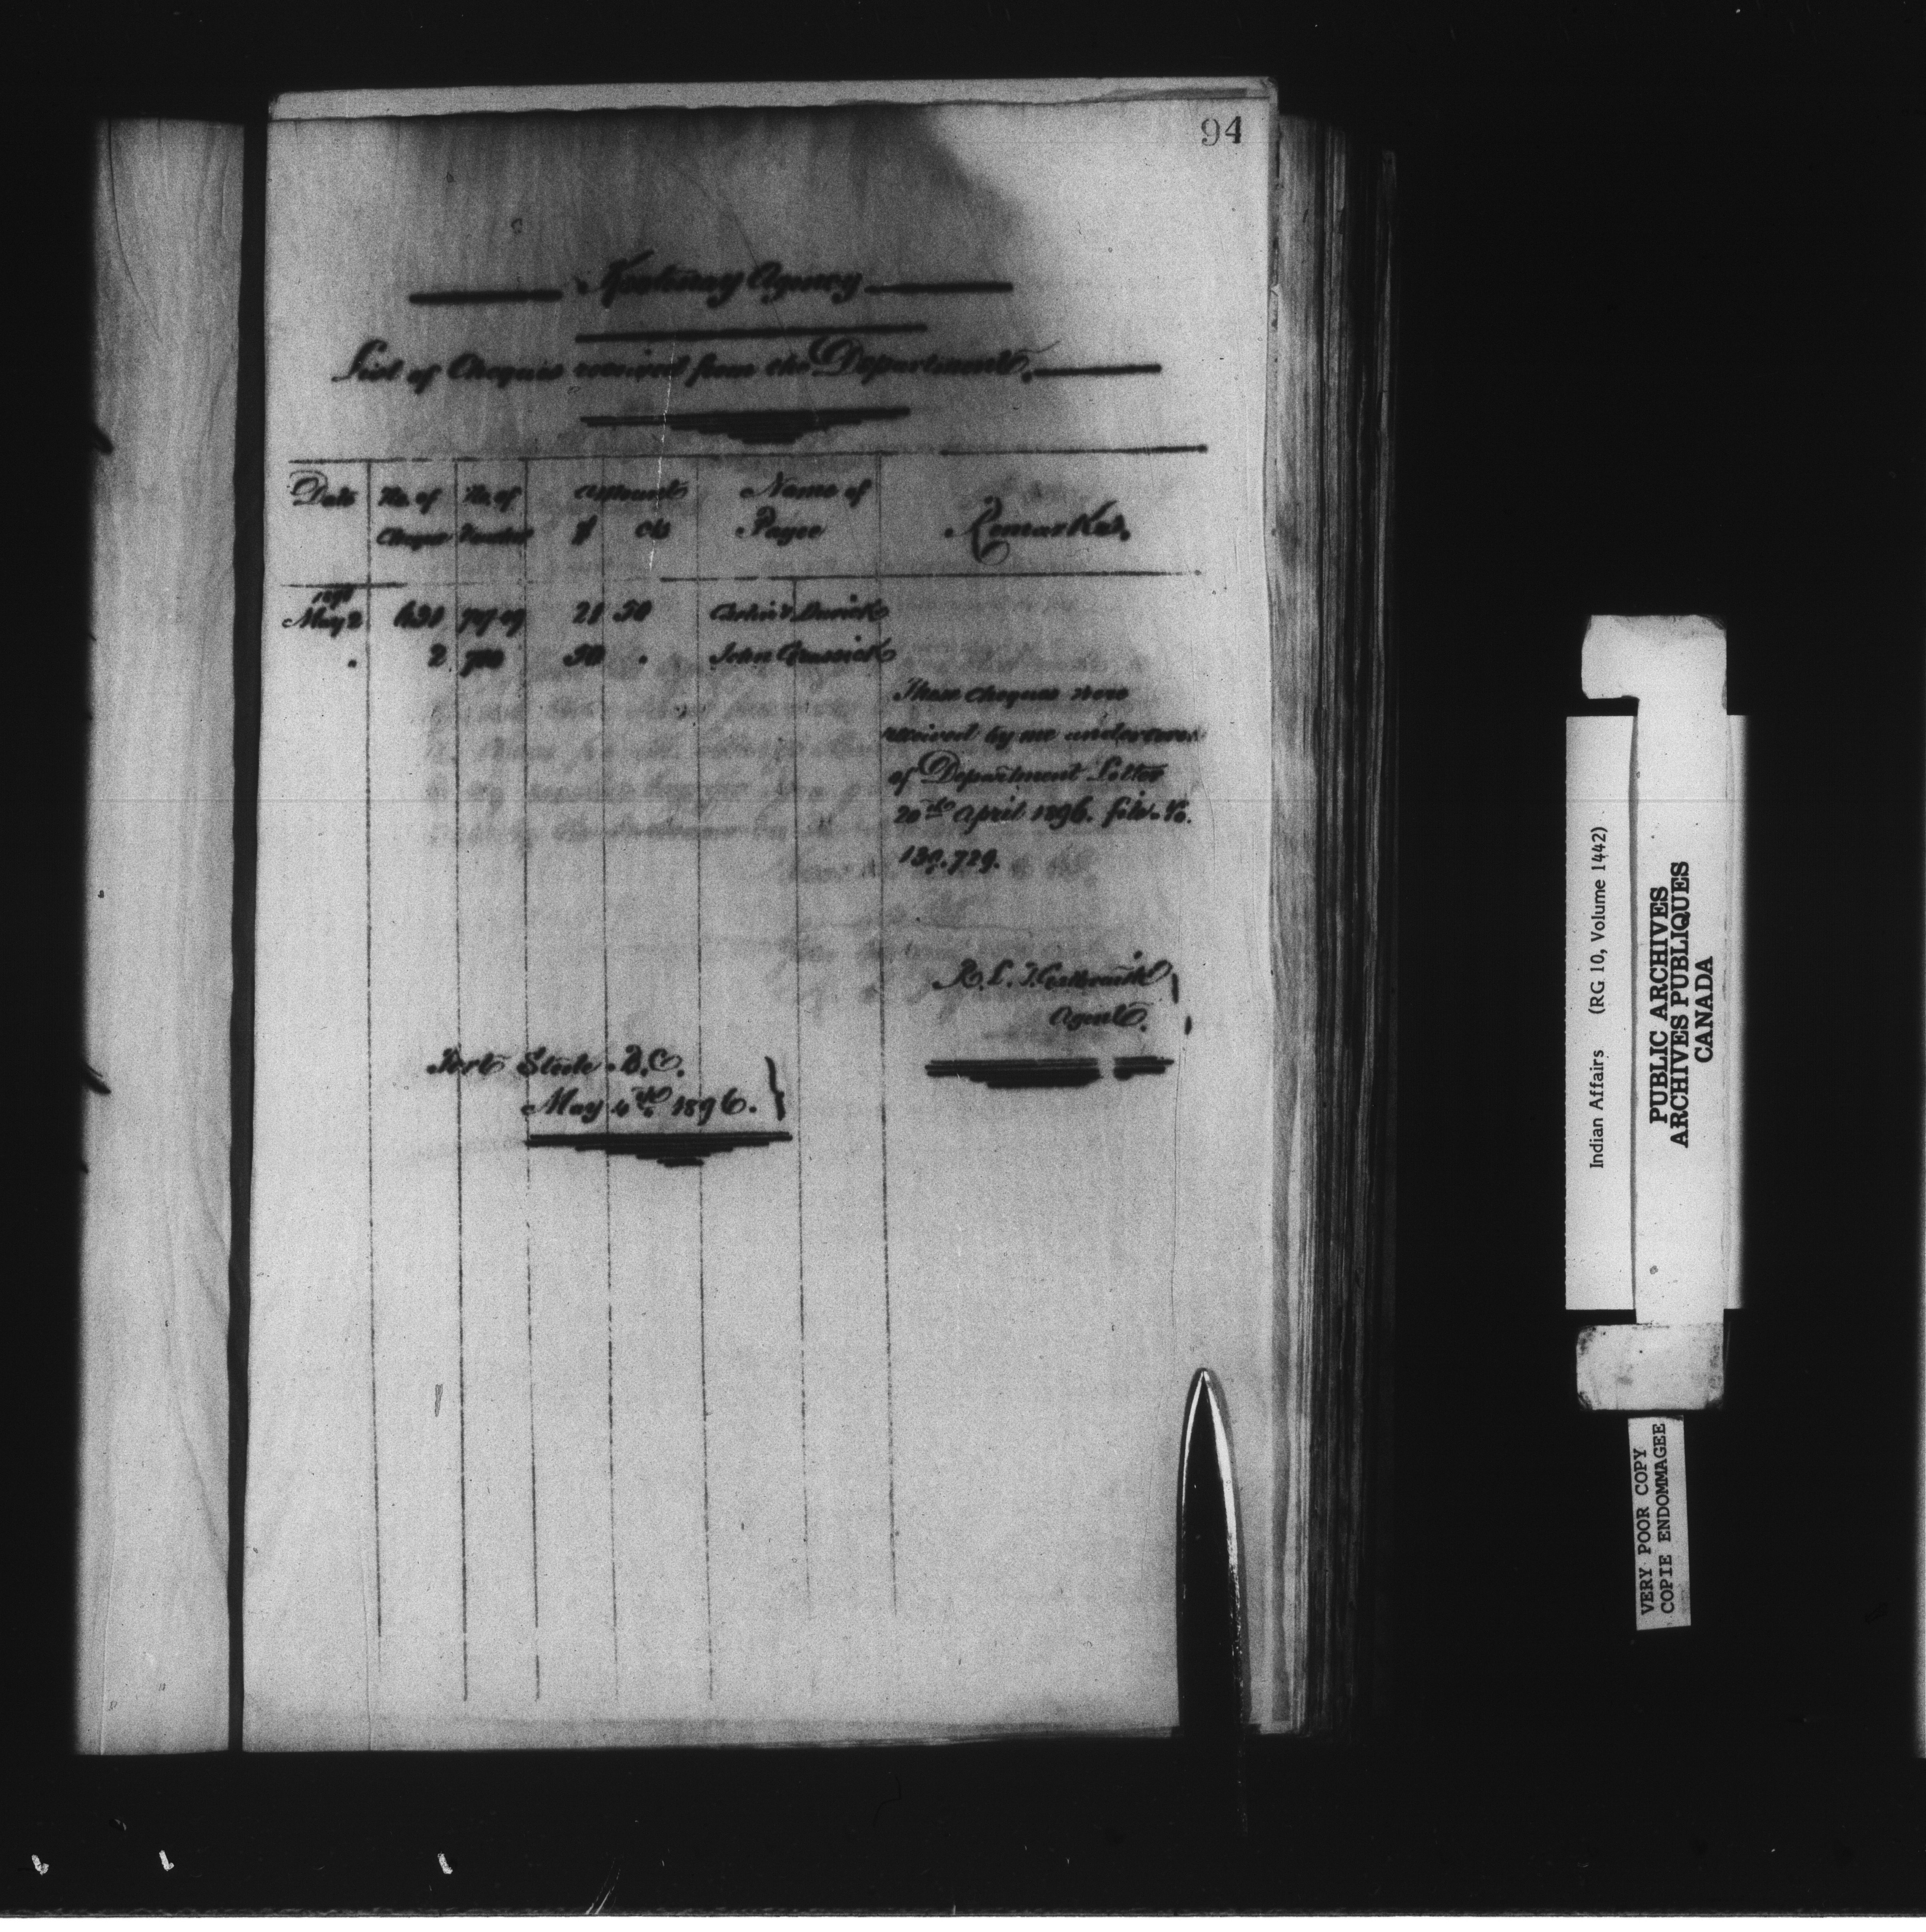 94
Kootenay Agency
List of Cheques received from the Department.
Date No. of No. of Amount Name of Remarks.
Cheque Voucher $ cts Payee
1896
May 2 21 50
" 2 50 "
These cheques were
received by me under cover
of Department Letter
20th April 1896. file No.
130.729.
R. L. T. Galbraith
Agent.
Fort Steele B.C.
May 4th 1896.
Indian Affairs (RG 10, Volume 1442)
PUBLIC ARCHIVES
ARCHIVES PUBLIQUES
CANADA
VERY POOR COPY
COPIE ENDOMMAGEE